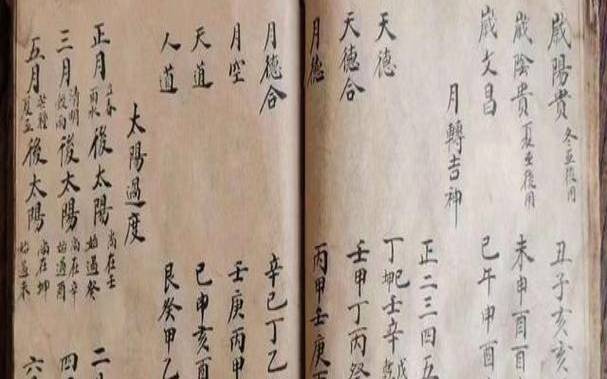 歲陽貴 冬至後用 丑子亥亥
歲陰貴 夏至後用 未申酉酉
歲文昌 巳午申酉
月轉吉神 正二三四五
天德 丁坤壬辛
天德合 壬甲丁丙
月德 丙甲壬庚丙
月德合 辛己丁乙
月空 壬庚丙甲
天道 巳申亥酉
人道 艮癸甲乙
太陽過度
正月 立春 雨水 後太陽 尚在壬 始過癸 二
三月 清明 穀雨 後太陽 尚在辛 始過酉 四
五月 芒種 後太陽 尚在坤 始過未 六